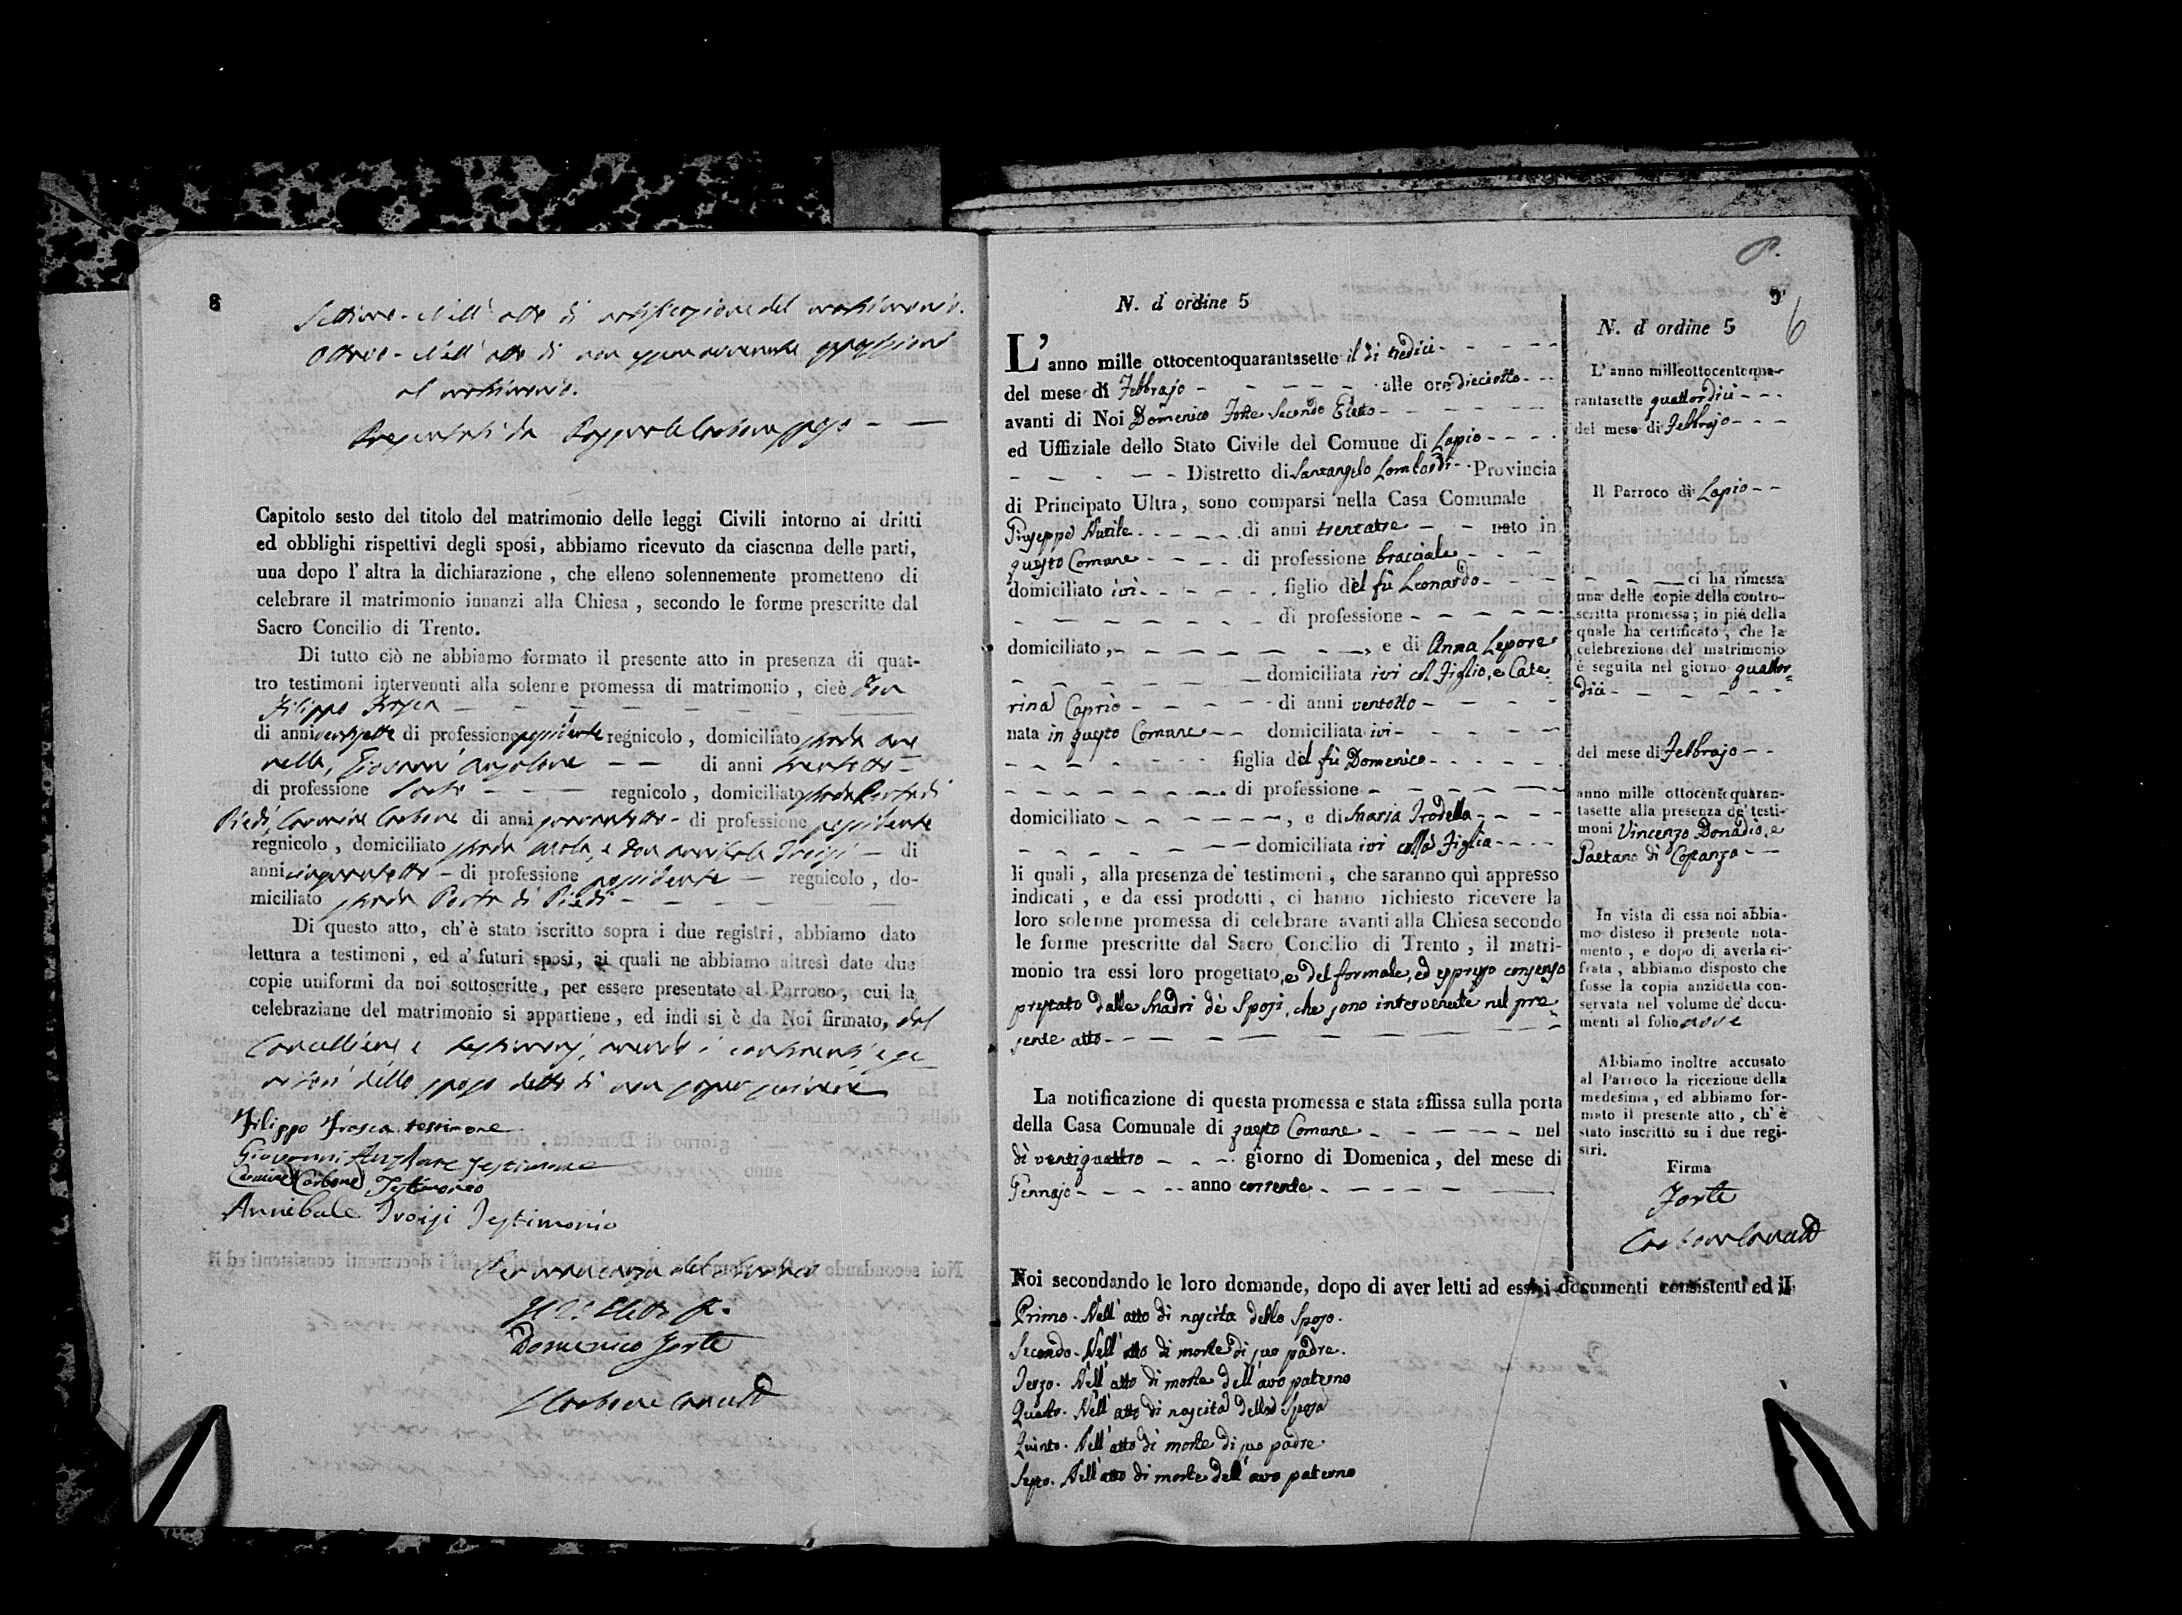 8
Settimo - Nell' atto di notificazione del matrimonio.
Ottavo - Nell' atto di non essere avvenuta opposizione
al matrimonio.
Presentati da
Capitolo sesto del titolo del matrimonio delle leggi Civili intorno ai dritti
ed obblighi rispettivi degli sposi, abbiamo ricevuto da ciascnna delle parti,
una dopo l' altra la dichiarazione, che elleno solennemente promettono di
celebrare il matrimonio innanzi alla Chiesa, secondo le forme prescritte dal
Sacro Concilio di Trento.
Di tutto ciò ne abbiamo formato il presente atto in presenza di quat-
tro testimoni intervenuti alla solenne promessa di matrimonio, cioè Don
Filippo Frosca
di anni di professione possidente regnicolo, domiciliato strada
Giovanni Angolone di anni trentotto
di professione Sarto regnicolo, domiciliato strada Porta di
Piedi, Carmine Carbone di anni quarantotto di professione possidente
regnicolo, domiciliato strada e Don Annibale Troisi di
anni cinquantotto di professione possidente regnicolo, do-
miciliato strada Porta di Piedi
Di questo atto, ch' è stato iscritto sopra i due registri, abbiamo dato
lettura a testimoni, ed a' futuri sposi, ai quali ne abbiamo altresì date due
copie uniformi da noi sottoscritte, per essere presentate al Parroco, cui la
celebraziane del matrimonio si appartiene, ed indi si è da Noi firmato, dal
Cancelliere e testimonj, avendo i contraenti, e ge
nitori dello sposo detto di non saper scrivere
Filippo Frosca testimone
Giovanni Angolone testimone
Carmine Carbone Testimonio
Annibale Troisi Testimonio
Il 2° Eletto
Domenico Forte
Carbone
N. d' ordine 5
9
6
L' anno mille ottocentoquarantasette il di tredici
del mese di Febbrajo alle ore dieciotto
avanti di Noi Domenico Forte Secondo Eletto
ed Uffiziale dello Stato Civile del Comune di Lapio
Distretto di Santangelo Lombardi Provincia
di Principato Ultra, sono comparsi nella Casa Comunale
Giuseppe Nutile di anni trentatre nato in
questo Comune di professione bracciale
domiciliato ivi figlio del fù Leonardo
di professione
domiciliato, e di Anna Lepore
domiciliata ivi col Figlio, e Cate
rina Caprio di anni ventotto
nata in questo Comune domiciliata ivi
figlia del fù Domenico
di professione
domiciliato, e di Maria Trodella
domiciliata ivi colla Figlia
li quali, alla presenza de' testimoni, che saranno quì appresso
indicati, e da essi prodotti, ci hanno richiesto ricevere la
loro solenne promessa di celebrare avanti alla Chiesa secondo
le forme prescritte dal Sacro Concilio di Trento, il matri-
monio tra essi loro progettato, e del formale, ed espresso consenso
prestato dalle Madri dè Sposi, che sono intervenute nel pre
sente atto
La notificazione di questa promessa e stata affissa sulla porta
della Casa Comunale di questo Comune nel
dì ventiquattro giorno di Domenica, del mese di
Gennajo anno corrente
Noi secondando le loro domande, dopo di aver letti ad essi i documenti consistenti ed il
Primo - Nell' atto di nascita dello Sposo.
Secondo - Nell' atto di morte di suo padre.
Terzo - Nell' atto di morte dell' avo paterno
Quarto - Nell' atto di nascita della Sposa
Quinto - Nell' atto di morte di suo padre.
Sesto - Nell' atto di morte dell' avo paterno
N. d' ordine 5
L' anno milleottocentoqua-
rantasette quattordici
del mese di Febbrajo
Il Parroco di Lapio
ci ha rimessa
una delle copie della contro-
scritta promessa; in piè della
quale ha certificato, che la
celebrezione del matrimonio
è seguita nel giorno quattor=
dici
del mese di Febbrajo
anno mille ottocentoquaran-
tasette alla presenza de' testi-
moni Vincenzo Donadio, e
Gaetano di Costanzo
In vista di essa noi abbia-
mo disteso il presente nota-
mento, e dopo di averla ci-
frata, abbiamo disposto che
fosse la copia anzidetta con-
servata nel volume de' docu-
menti al folio nove
Abbiamo inoltre accusato
al Parroco la ricezione della
medesima, ed abbiamo for-
mato il presente atto, ch' è
stato inscritto su i due regi-
stri.
Firma
Forte
Carbone